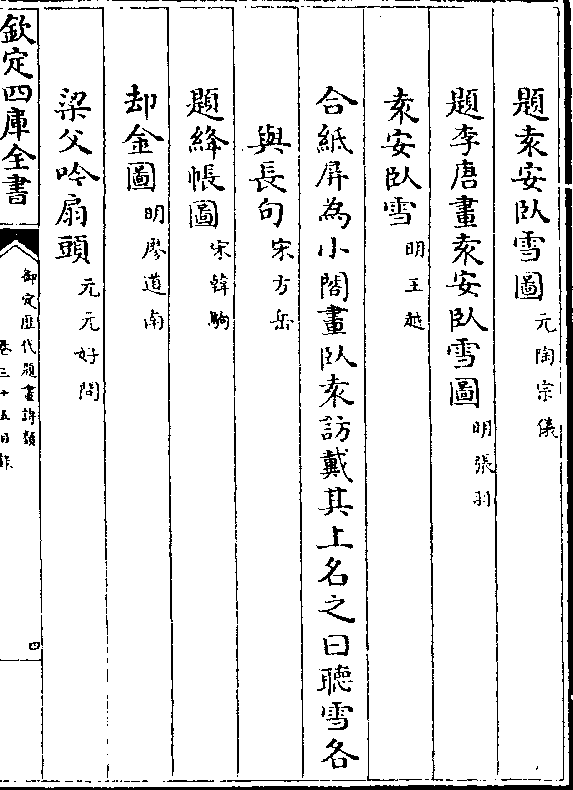 題袁安臥雪圖 元陶宗儀
題李唐畫袁安臥雪圖 明張羽
袁安臥雪 明王越
合紙屏為小閤畫臥袁訪戴其上名之曰聽雪各
與長句 宋方岳
題絳帳圖 宋韓駒
却金圖 明廖道南
梁父吟扇頭 元元好問
欽定四庫全書
御定歴代題畫詩類
卷三十五目錄
四